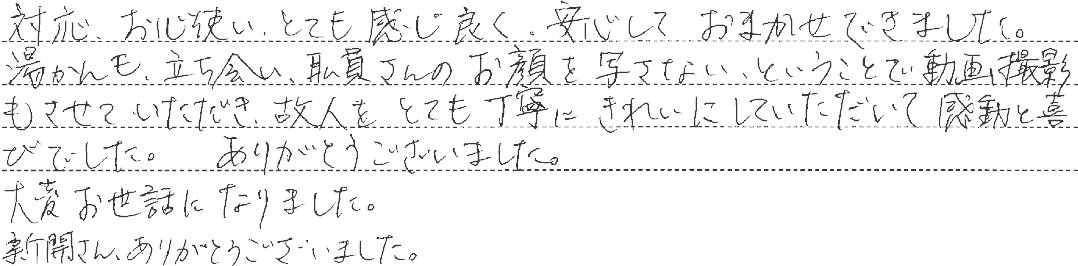 対応、お心使い、とても感じ良く、安心しておまかせできました。
湯かんも、立ち会い、職員さんのお顔を写さない、ということで動画撮影
もさせていただき、故人をとても丁寧にきれいにしていただいて感動と喜
びでした。　ありがとうございました。
大変お世話になりました。
新開さん、ありがとうございました。